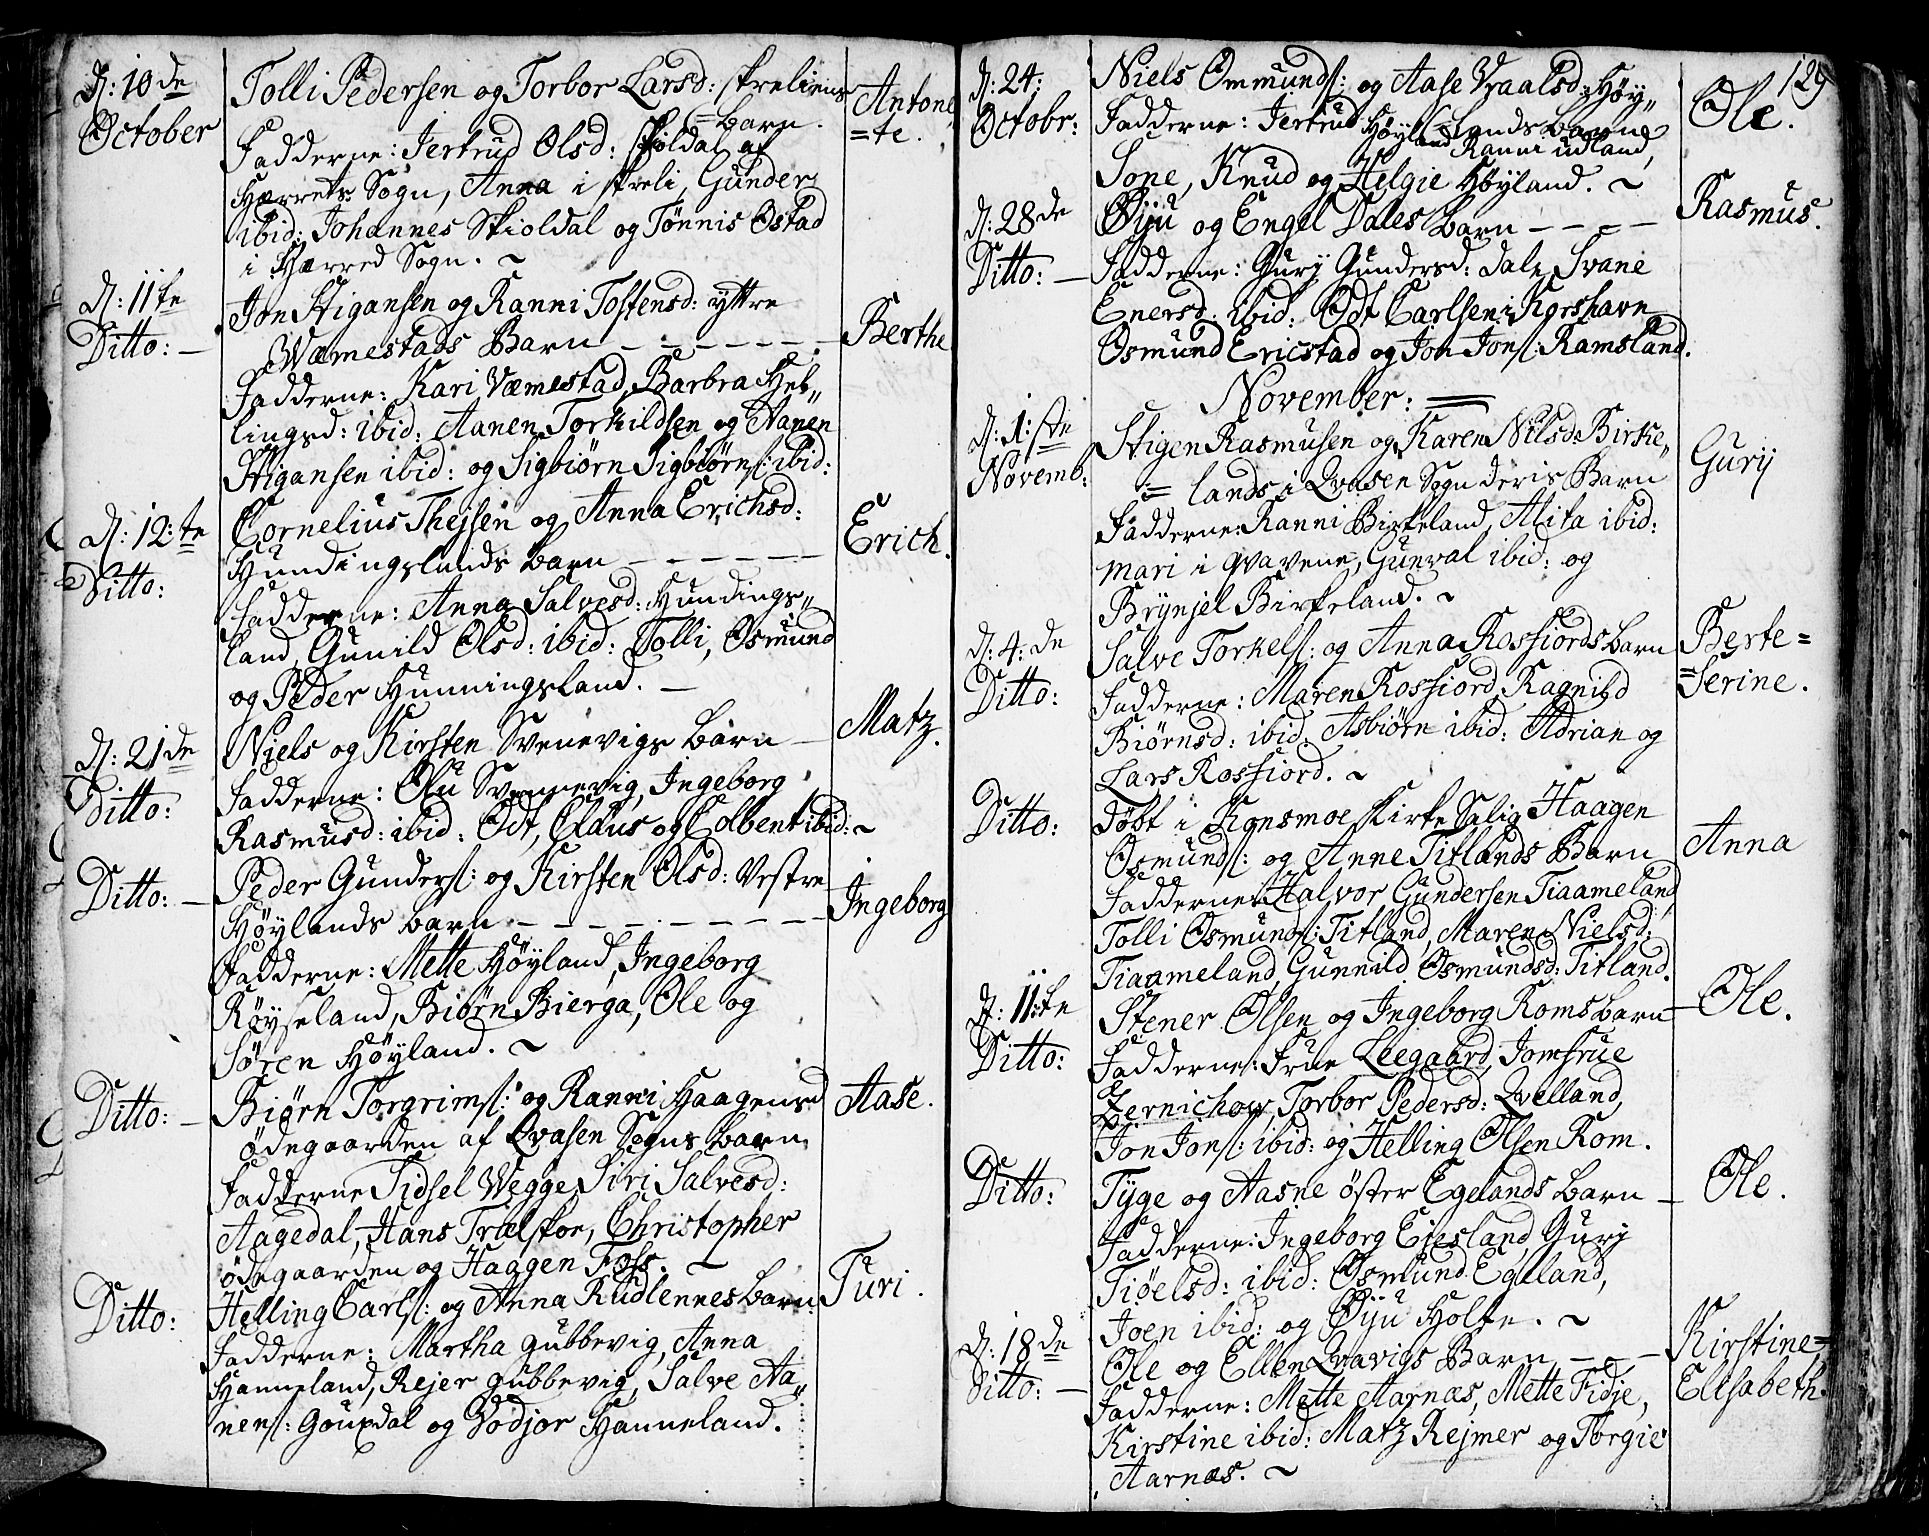 D: 10de October
Tolli Pedersen og Torbor Larsd: skreliens
= Barn.
Antone
=te.
Fadderne: Jertrud Olsd: Skioldal af
Hærrets Sogn, Anna i skreli, Gunder
ibid: Johannes Skioldal og Tønnis Ostad
i Hærred Sogn. ~
D: 11te Ditto: —
Jon Stigansen og Ranni Tostensd: yttre
Wæmestads Barn — — — — — —
Berthe
Fadderne: Kari Væmestad, Barbra Hel„
lingsd: ibid: Aanen Torkildsen og Aanen
Stigansen ibid: og Sigbiørn Sigbiørns: ibid:
D: 12:te Ditto:
Cornelius Thejsen og Anna Erichsd:
Hundingslands barn — — — — —
Erich.
Fadderne: Anna Salvesd: Hundings„
land, Gunild Olsd: ibid: Tolli, Osmund
og Peder Hunningsland. —
D: 21de Ditto:
Niels og Kirsten Svenevigs barn —
Matz.
Fadderne: Olu Svennevig, Ingeborg
Rasmusd: ibid: Odt, Claus og Colbent ibid: ~
Ditto: —
Peder Gunders: og Kirsten Olsd: Vestre
Høylands barn — — — — — — — —
Ingeborg
Fadderne: Mette Høyland, Ingeborg
Røyseland, Biørn Bierga, Ole og
Søren Høyland. ~
Ditto: —
Biørn Torgrims: og Ranni Haagensd
ødegaarden af Qvasen Sogns barn
Aase.
Fadderne Sidsel Wegge Siri Salvesd:
Aagedal, Hans Trælskor, Christopher
ødegaarden og Haagen Foss. ~
Ditto:
Helling Carls: og Anna Rudlennes barn:
Turi.
Fadderne: Martha gubbevig, Anna
Hanneland, Rejer gubbevig, Salve Aa„
nens: Goupdal og Vodjor Hanneland.
129
D: 24: Octobr:
Niels Ommunds: og Aase Vraalsd: Høy„
= lands barn
Ole.
Fadderne: Jertrud Høyland Ranni udland,
Sone, Knud og Helgie Høyland. ~
D: 28de Ditto: —
Øiju og Engel Dales barn — — — —
Rasmus.
Fadderne: Gury Gundersd: dale, Svane
Enersd: ibid: Odt Carlsen i Korshavn
Osmund Ericstad og Jon Jons: Ramsland.
November: —
D: 1:ste Novemb:
Stigen Rasmusen og Karen Nilsd: Birke„
= lands i Qvasen Sogn deris Barn
Gurij
Fadderne: Ranni Birkeland, Alita ibid:
mari i qvavene, Gunval ibid: og
Brynjel Birkeland. ~
D: 4:de Ditto:
Salve Torkels: og Anna Rosfiords barn
Berte=
=Serine.
Fadderne: Maren Rosfiord, Ragnild
Biørnsd: ibid: Asbiørn ibid: Adrian og
Lars Rosfiord. ~
Ditto:
døbt i Konsmoe Kirke Salig Haagen
Osmunds: og Anne Titlands Barn
Anna
Fadderne: Halvor Gundersen Tiaameland
Tolli Osmunds: Titland, Maren Nielsd:
Tiaameland, Gunnild Osmundsd: Titland.
D: 11te Ditto:
Stener Olsen og Ingeborg Roms barn —
Ole.
Fadderne: Frue Leegaard, Jomfrue
Zernichow, Torbor Pedersd: Qvelland,
Jon Jons: ibid: og Helling Olsen Rom.
Ditto:
Tyge og Aasne øster Egelands barn —
Ole.
Fadderne: Ingeborg Eiesland, Gurj
Tiøelsd: ibid: Osmund Egeland,
Joen ibid: og Øiju Holte. ~
D: 18de Ditto: —
Ole og Ellen Qvavigs Barn — — —
Kirstine=
Elisabeth.
Fadderne: Mette Aarnæs, Mette Fidje,
Kirstine ibid: Matz Rejmer og Torgie
Aarnæs. ~